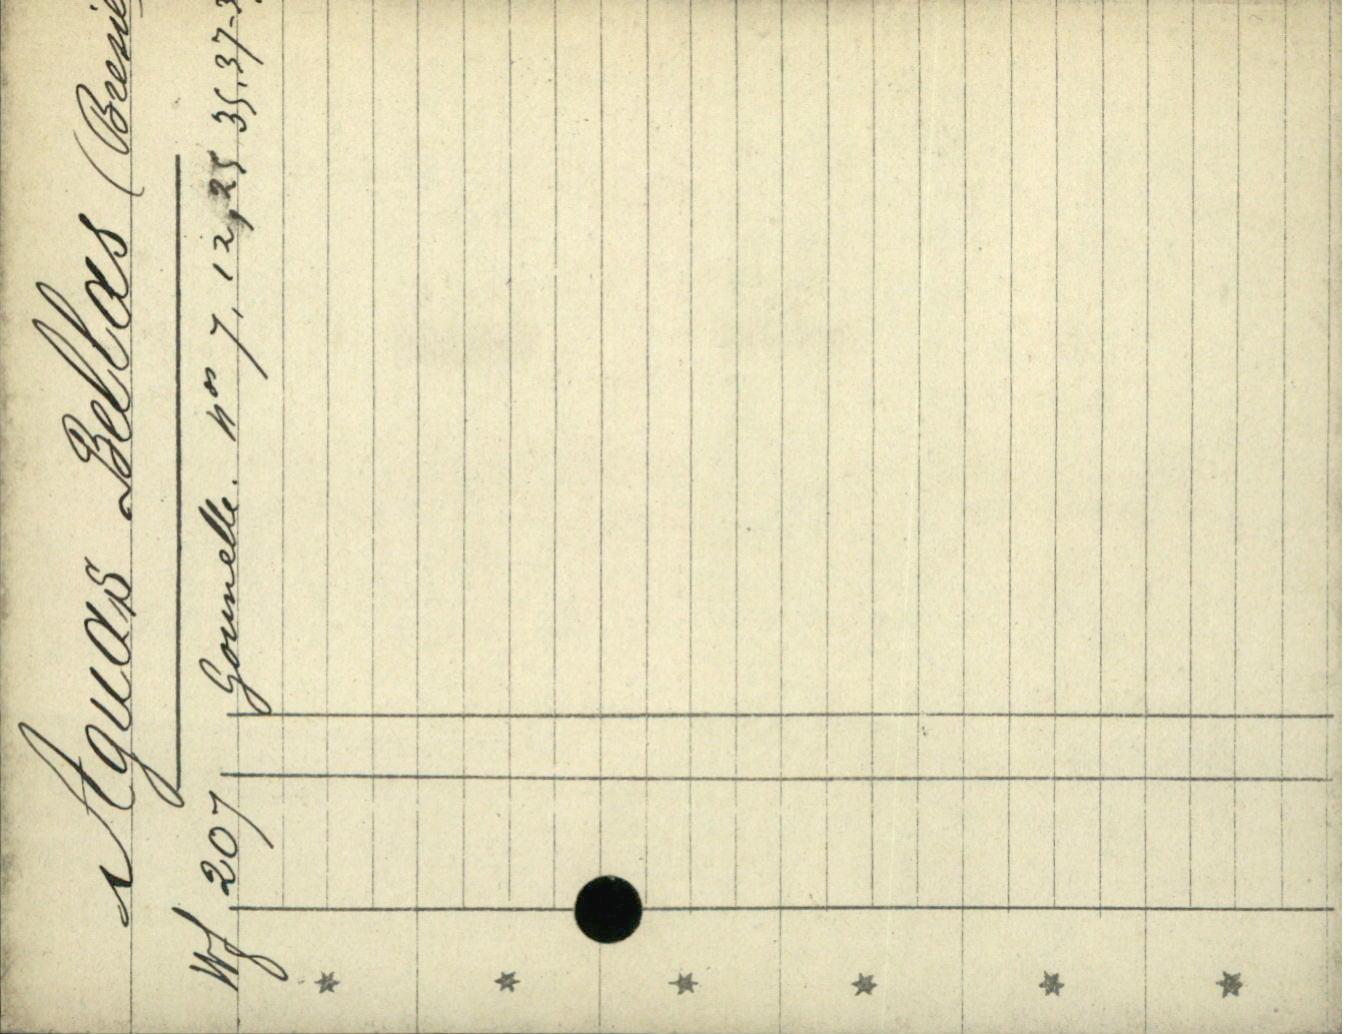 Aguas Bellas (Bresil
Wf 207 Gounelle. nos 7, 12, 25 35, 37-3